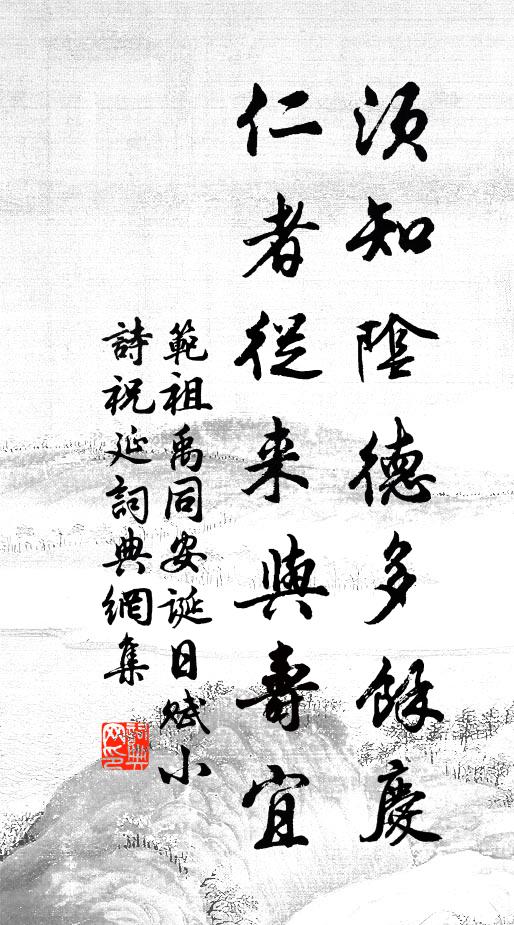 須知陰德多餘慶
仁者從来與壽宜
範祖禹同安誕日赋小
詩祝延詞典網集